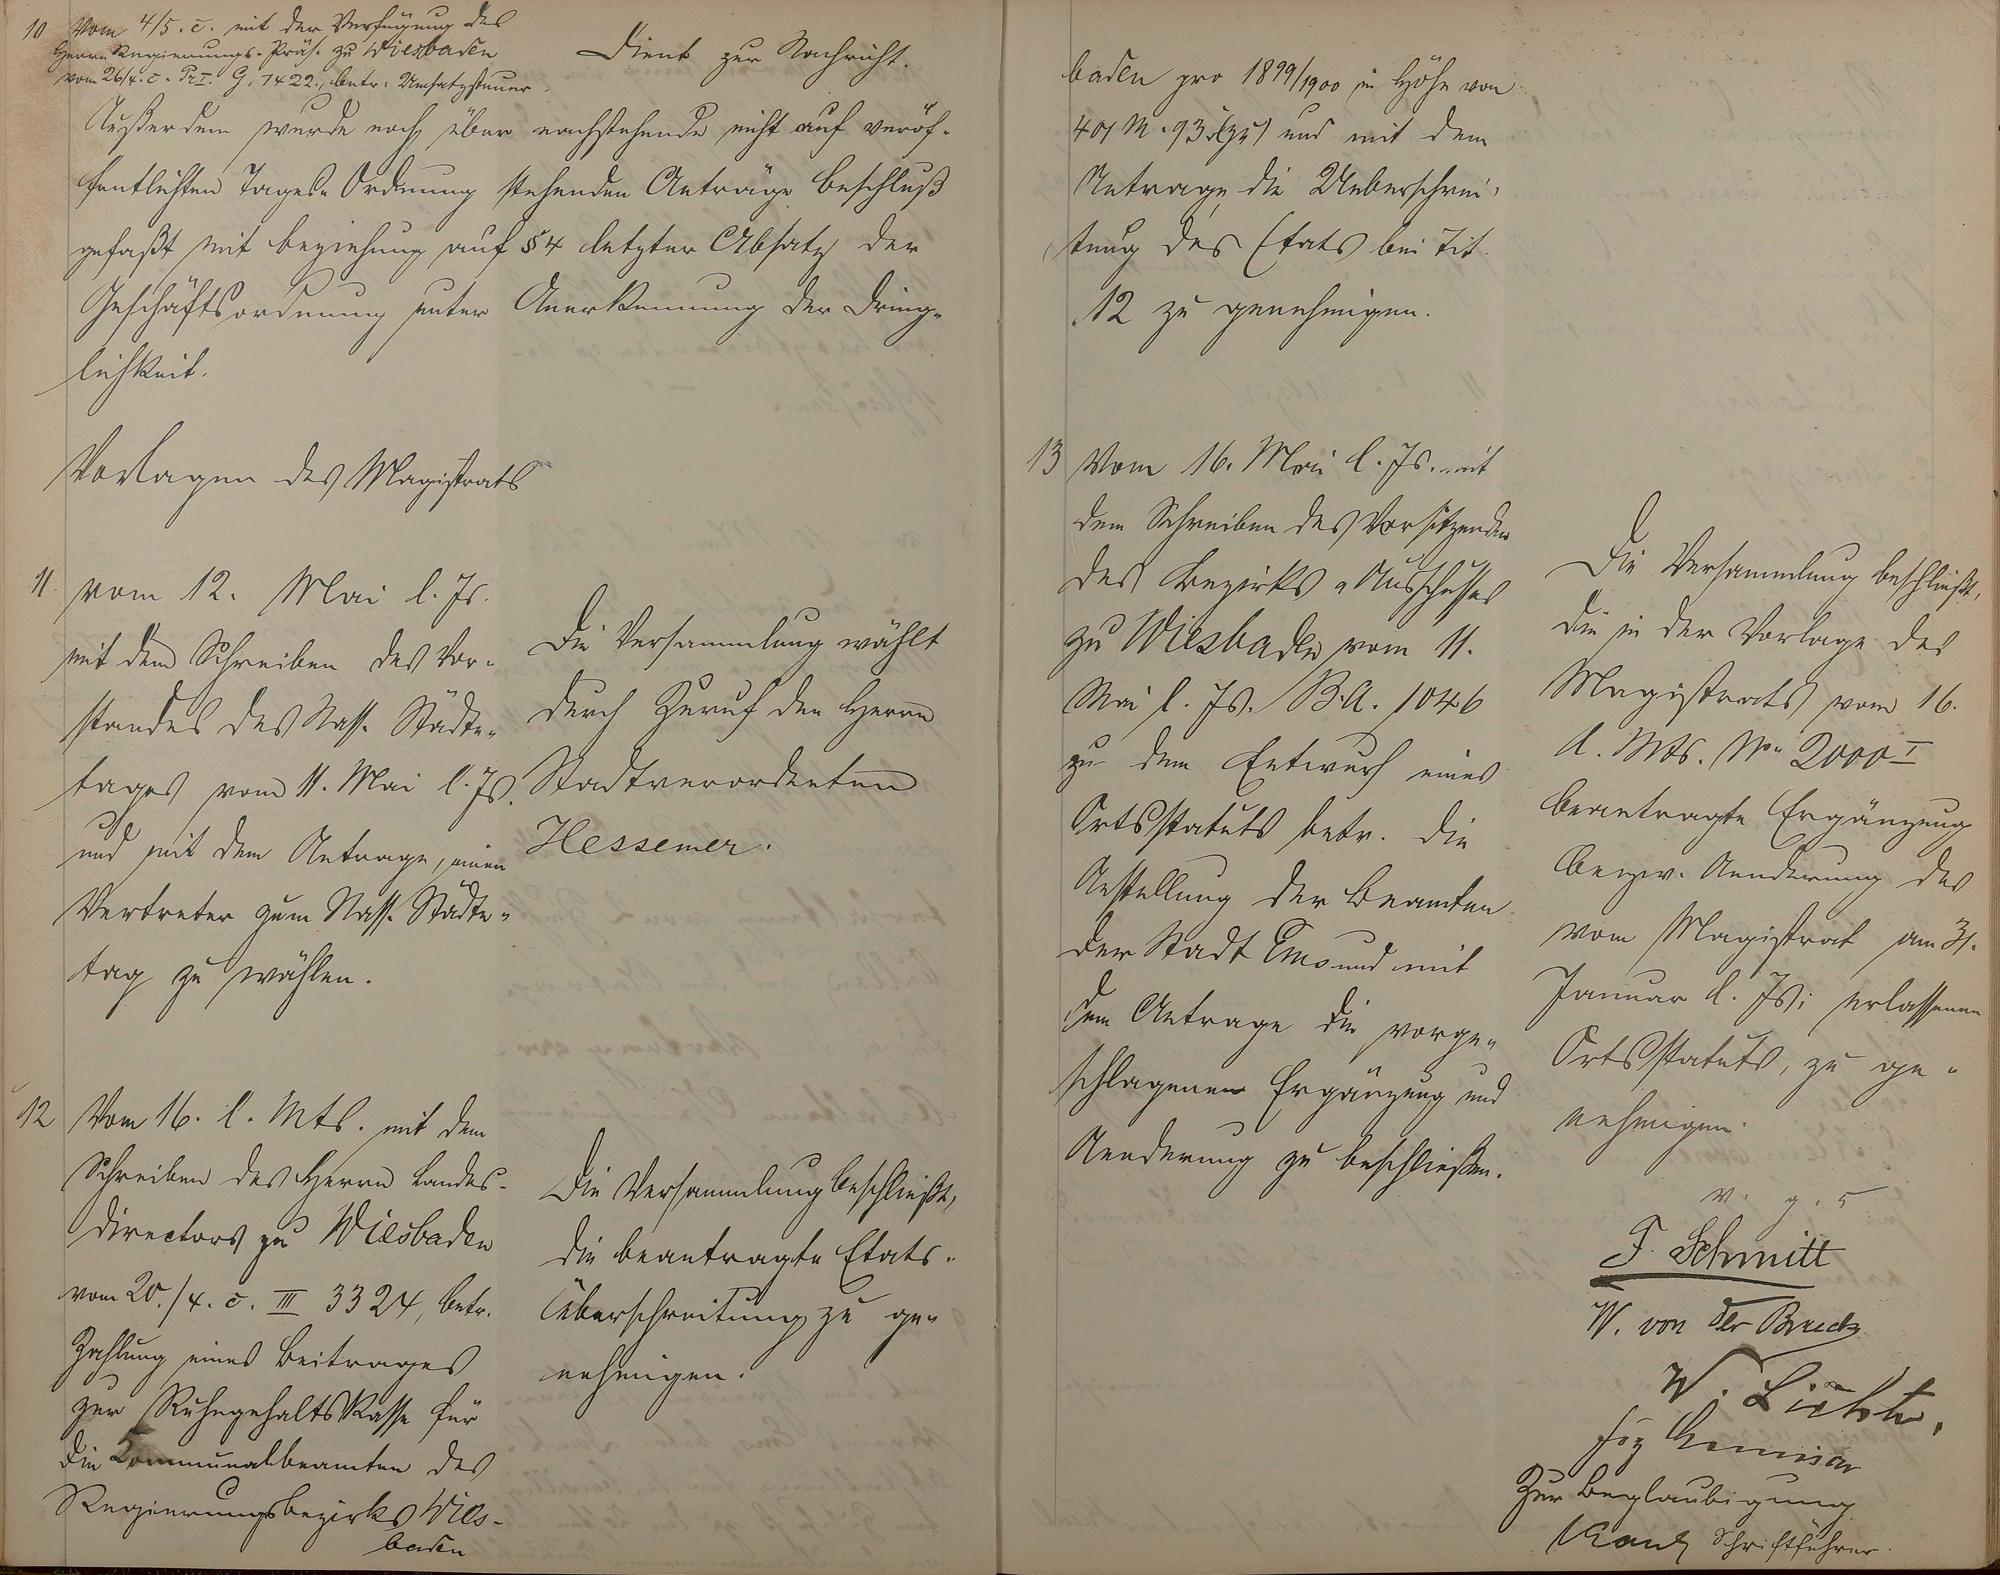 10 Vom 4/5. c. mit der Verfügung des
Herrn Regierungs-Präs. zu Wiesbaden
vom 26/4. c. Pr. I. G. 1422., betr: Umsatzsteuer.
Dient zur Nachricht.
Außerdem wurde noch über nachstehende nicht auf veröf-
fentlichten Tages-Ordnung stehenden Anträge Beschluß
gefaßt mit Beziehung auf § 4 letzter Absatz der
Geschäftsordnung unter Anerkennung der Dring-
lichkeit.
Vorlagen des Magistrats
11. vom 12. Mai l. Js.
mit dem Schreiben des Vor-
standes des Nass. Städte-
tages vom 11. Mai l. Js.
und mit dem Antrage, einen
Vertreter zum Nass. Städte-
tag zu wählen.
Die Versammlung wählt
durch Zuruf den Herrn
Stadtverordneten
Hessemer.
12 Vom 16. l. Mts. mit dem
Schreiben des Herrn Landes-
directors zu Wiesbaden
vom 20./4. c. III 3324, betr.
Zahlung eines Beitrages
zur Ruhegehaltskasse für
die Communalbeamten des
Regierungsbezirks Wies-
baden
Die Versammlung beschließt,
die beantragte Etats-
überschreitung zu ge-
nehmigen.
baden pro 1899/1900 in Höhe von
401 M. 93 und mit dem
Antrage die Ueberschrei-
tung des Etats bei Tit.
12 zu genehmigen.
13 Vom 16. Mai l. Js. mit
dem Schreiben des Vorsitzenden
des Bezirks-Ausschusses
zu Wiesbaden vom 11.
Mai l. Js. B.A. 1046
zu dem Entwurf eines
Ortsstatuts betr. die
Anstellung der Beamten
der Stadt Ems und mit
dem Antrage die vorge-
schlagenen Ergänzung und
Aenderung zu beschließen.
Die Versammlung beschließt,
die in der Vorlage des
Magistrats vom 16.
d. Mts. No. 2000 I
beantragte Ergänzung
bezw. Aenderung des
vom Magistrat am 31.
Januar l. Js. erlassenen
Ortsstatuts, zu ge-
nehmigen.
v. g. u.
F. Schmitt
W. von der Brück
W. Lichte
Zur Beglaubigung
Schriftführer.